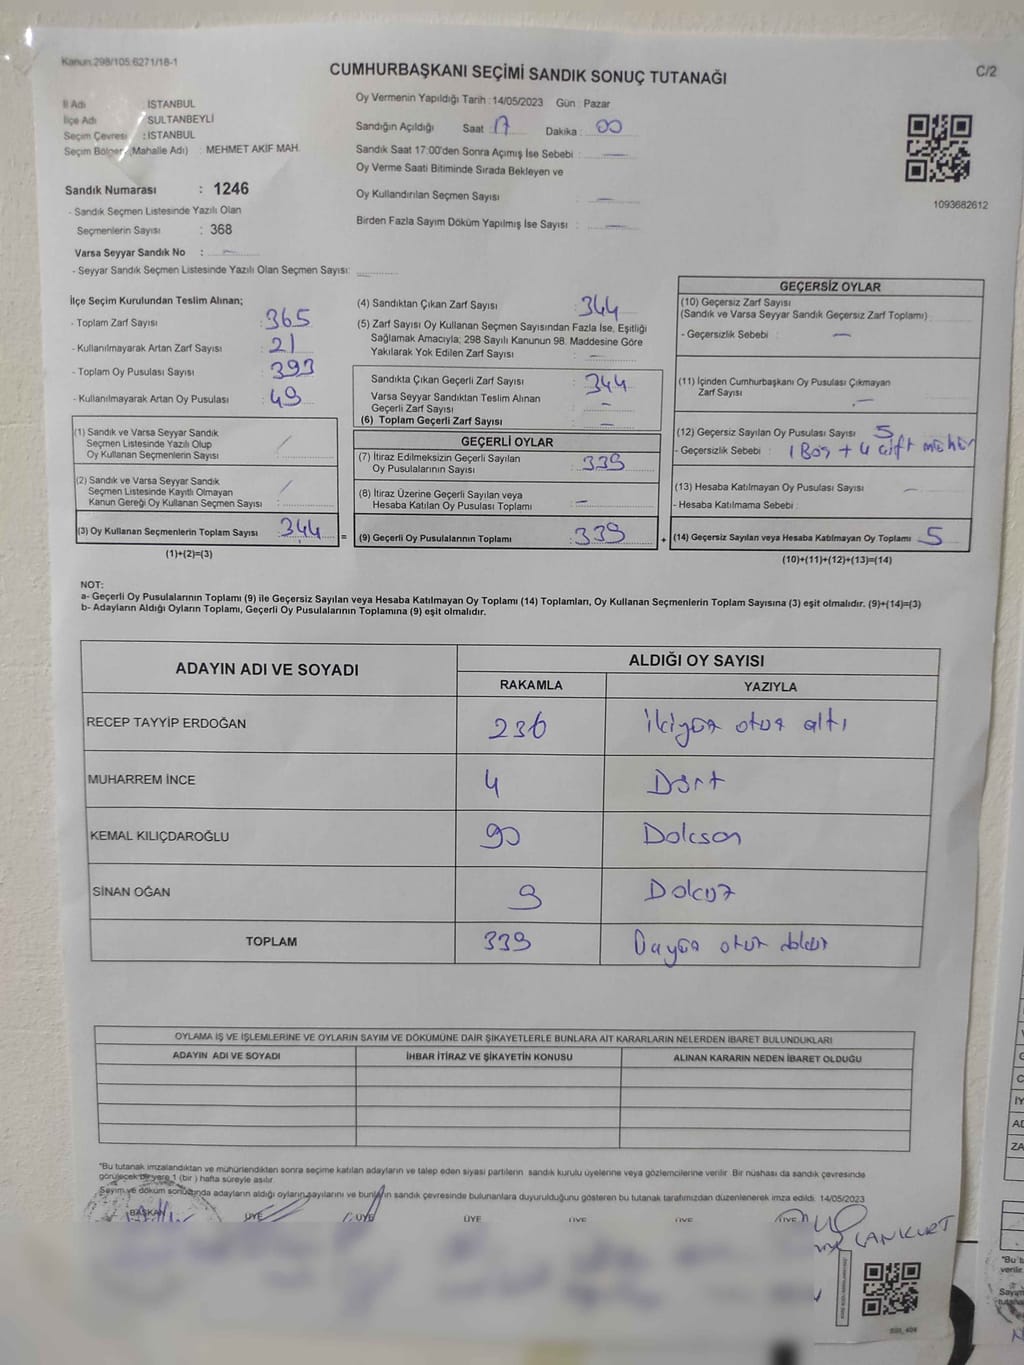 Kanun:298/105.6271/18-1
CUMHURBAŞKANI SEÇİMİ SANDIK SONUÇ TUTANAĞI
C/2
İl Adı : İSTANBUL
İlçe Adı : SULTANBEYLİ
Seçim Çevresi : İSTANBUL
Seçim Bölgesi (Mahalle Adı) : MEHMET AKİF MAH.
Sandık Numarası : 1246
- Sandık Seçmen Listesinde Yazılı Olan
Seçmenlerin Sayısı : 368
Varsa Seyyar Sandık No : —
- Seyyar Sandık Seçmen Listesinde Yazılı Olan Seçmen Sayısı:
Oy Vermenin Yapıldığı Tarih : 14/05/2023 Gün : Pazar
Sandığın Açıldığı Saat : 17 Dakika : 00
Sandık Saat 17:00'den Sonra Açımış İse Sebebi : —
Oy Verme Saati Bitiminde Sırada Bekleyen ve
Oy Kullandırılan Seçmen Sayısı : —
Birden Fazla Sayım Döküm Yapılmış İse Sayısı : —
1093682612
İlçe Seçim Kurulundan Teslim Alınan;
- Toplam Zarf Sayısı : 365
- Kullanılmayarak Artan Zarf Sayısı : 21
- Toplam Oy Pusulası Sayısı : 393
- Kullanılmayarak Artan Oy Pusulası : 49
(1) Sandık ve Varsa Seyyar Sandık
Seçmen Listesinde Yazılı Olup
Oy Kullanan Seçmenlerin Sayısı : /
(2) Sandık ve Varsa Seyyar Sandık
Seçmen Listesinde Kayıtlı Olmayan
Kanun Gereği Oy Kullanan Seçmen Sayısı : /
(3) Oy Kullanan Seçmenlerin Toplam Sayısı : 344
(1)+(2)=(3)
=
(4) Sandıktan Çıkan Zarf Sayısı : 344
(5) Zarf Sayısı Oy Kullanan Seçmen Sayısından Fazla İse, Eşitliği
Sağlamak Amacıyla; 298 Sayılı Kanunun 98. Maddesine Göre
Yakılarak Yok Edilen Zarf Sayısı : —
Sandıkta Çıkan Geçerli Zarf Sayısı : 344
Varsa Seyyar Sandıktan Teslim Alınan
Geçerli Zarf Sayısı : —
(6) Toplam Geçerli Zarf Sayısı : —
GEÇERLİ OYLAR
(7) İtiraz Edilmeksizin Geçerli Sayılan
Oy Pusulalarının Sayısı : 339
(8) İtiraz Üzerine Geçerli Sayılan veya
Hesaba Katılan Oy Pusulası Toplamı : —
(9) Geçerli Oy Pusulalarının Toplamı : 339
+
GEÇERSİZ OYLAR
(10) Geçersiz Zarf Sayısı
(Sandık ve Varsa Seyyar Sandık Geçersiz Zarf Toplamı)
- Geçersizlik Sebebi : —
(11) İçinden Cumhurbaşkanı Oy Pusulası Çıkmayan
Zarf Sayısı : —
(12) Geçersiz Sayılan Oy Pusulası Sayısı : 5
- Geçersizlik Sebebi : 1 Boş + 4 çift mühür
(13) Hesaba Katılmayan Oy Pusulası Sayısı : —
- Hesaba Katılmama Sebebi :
(14) Geçersiz Sayılan veya Hesaba Katılmayan Oy Toplamı : 5
(10)+(11)+(12)+(13)=(14)
NOT:
a- Geçerli Oy Pusulalarının Toplamı (9) ile Geçersiz Sayılan veya Hesaba Katılmayan Oy Toplamı (14) Toplamları, Oy Kullanan Seçmenlerin Toplam Sayısına (3) eşit olmalıdır. (9)+(14)=(3)
b- Adayların Aldığı Oyların Toplamı, Geçerli Oy Pusulalarının Toplamına (9) eşit olmalıdır.
ADAYIN ADI VE SOYADI
ALDIĞI OY SAYISI
RAKAMLA YAZIYLA
RECEP TAYYİP ERDOĞAN 236 İkiyüz otuz altı
MUHARREM İNCE 4 Dört
KEMAL KILIÇDAROĞLU 90 Doksan
SİNAN OĞAN 9 Dokuz
TOPLAM 339 Üçyüz otuz dokuz
OYLAMA İŞ VE İŞLEMLERİNE VE OYLARIN SAYIM VE DÖKÜMÜNE DAİR ŞİKAYETLERLE BUNLARA AİT KARARLARIN NELERDEN İBARET BULUNDUKLARI
ADAYIN ADI VE SOYADI İHBAR İTİRAZ VE ŞİKAYETİN KONUSU ALINAN KARARIN NEDEN İBARET OLDUĞU
"Bu tutanak imzalandıktan ve mühürlendikten sonra seçime katılan adayların ve talep eden siyasi partilerin sandık kurulu üyelerine veya gözlemcilerine verilir. Bir nüshası da sandık çevresinde
görülecek bir yere 1 (bir) hafta süreyle asılır.
Sayım ve döküm sonucunda adayların aldığı oyların sayılarını ve bunların sandık çevresinde bulunanlara duyurulduğunu gösteren bu tutanak tarafımızdan düzenlenerek imza edildi. 14/05/2023
BAŞKAN ÜYE ÜYE ÜYE ÜYE ÜYE ÜYE
CANKURT